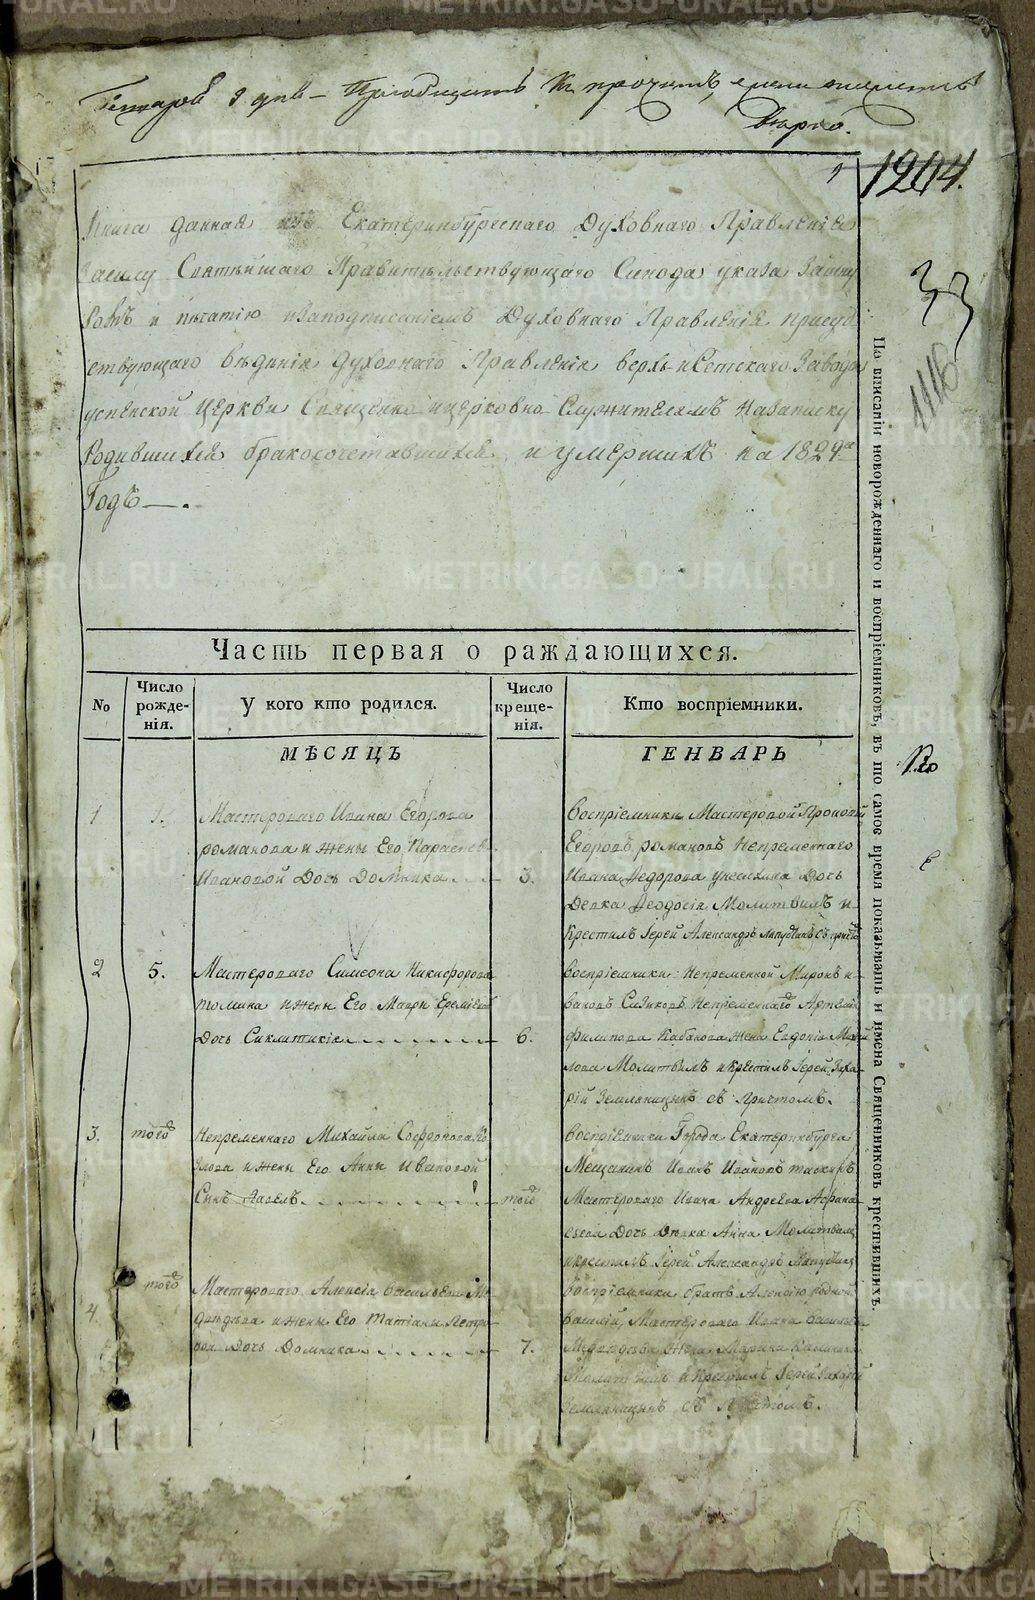 вѣрно.
1
1204.
33
1116
Книга данная изъ Екатеринбургскаго Духовнаго Правленія
Святѣйшаго Правительствующаго Синода указа зашну
ромъ и пѣчатію изаподписаніемъ Духовнаго Правленія присуд
ствующаго вѣденія духовнаго Правленія верхъ-исетскаго Завода
успѣнской Церкви Священно ицерковно Служителямъ Назаписку
Родившихся бракосочетавшихся и умершихъ на 1824й
Годъ —.
Часть первая о раждающихся.
No
Число рожде-нія.
У кого кто родился.
Число креще-нія.
Кто воспріемники.
МѢСЯЦЪ ГЕНВАРЬ
1
1.
Мастероваго Ивана Егорова
романова и жены Его Парасковьи
Ивановой Дочь Домника
3.
Воспріемники Мастеровой Прокопій
Егоровъ романовъ Непременнаго
Ивана Федорова Дочь
Девка Феодосія Молитвилъ и
Крестилъ Іерей Александръ Лапутинъ съ
2
5.
Мастероваго Симеона Никифорова
Фомина и жены Его Марьи Еремѣевой
Дочь Сиклитикія
6.
воспріемники Непременной Миронъ и
вановъ Непременнаго Артемія
филипова Кабакова жена Евдокія
Молитвилъ и крестилъ Іерей Заха
рій Земляницынъ съ Притчомъ.
3.
тогож
Непременнаго Михайла Софронова Ко
злова и жены Его Анны Ивановой
Сынъ Павелъ
тогож
Воспріемники Города Екатеринбурга
Мещанинъ Иванъ Ивановъ
Мастероваго Ивана Андреева Афана
сьева Дочь Девка Анна Молитвилъ
и крестилъ Іерей Александръ Лапутинъ
4.
тогож
Мастероваго Алексія васильева Ме
дведева и жены Его Татіаны Петро
вой Дочь Домника
7.
Воспріемники братъ Алексію родной
василій, Мастероваго Ивана васильева
Медведева жена Марина
Молитвилъ и Крестилъ Іерей Захарій
Земляницынъ съ Притчомъ.
По вписаніи новорожденнаго и воспріемниковъ, въ то самое время показывать и имена Священниковъ крестившихъ.
METRIKI.GASO-URAL.RU